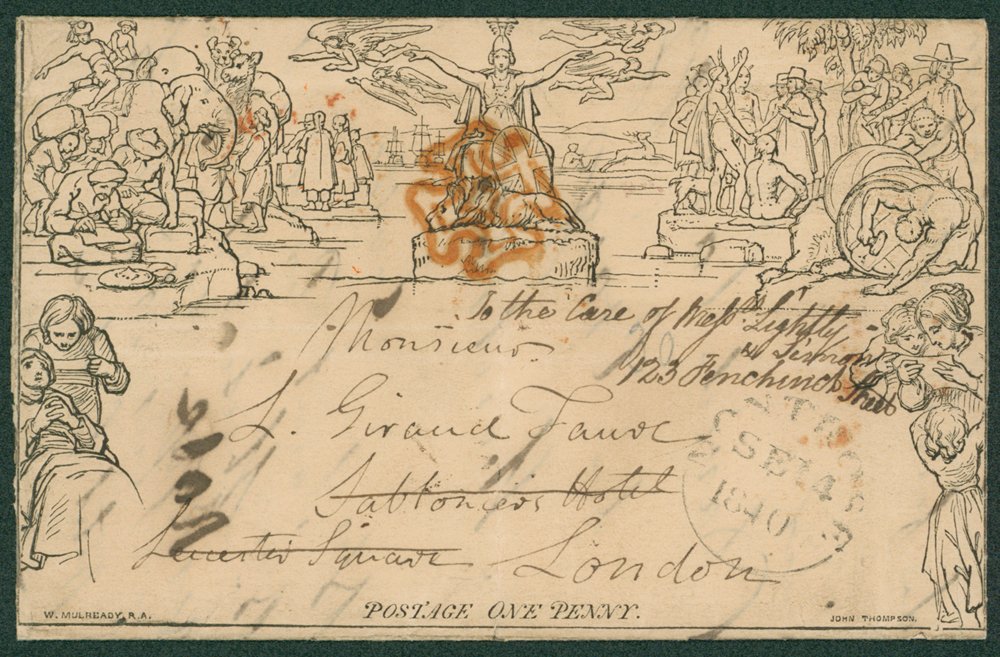 To the Care of Mess<sup>rs</sup> Lightly
& Simon
123 Fenchurch Street
Monsieur
L. Giraud Faure
Sablonier's Hotel
Leicester Square London
MONTROSE
SE 14
1840
W. MULREADY, R.A.
POSTAGE ONE PENNY.
JOHN THOMPSON.